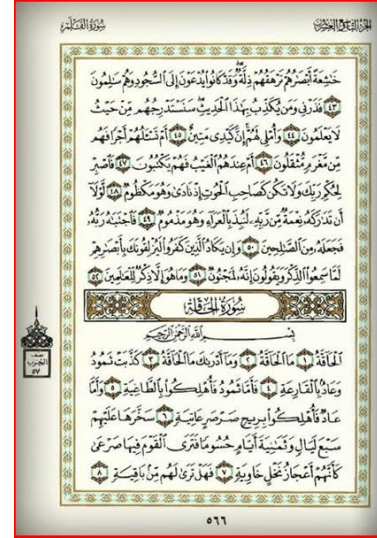 سُورَةُ القَلَمِ
الجزء التاسع والعشرون
خَاشِعَةً أَبْصَارُهُمْ تَرْهَقُهُمْ ذِلَّةٌ وَقَدْ كَانُوا يُدْعَوْنَ إِلَى السُّجُودِ وَهُمْ سَالِمُونَ
٤٣ فَذَرْنِي وَمَن يُكَذِّبُ بِهَٰذَا الْحَدِيثِ سَنَسْتَدْرِجُهُم مِّنْ حَيْثُ
لَا يَعْلَمُونَ ٤٤ وَأُمْلِي لَهُمْ إِنَّ كَيْدِي مَتِينٌ ٤٥ أَمْ تَسْأَلُهُمْ أَجْرًا فَهُم
مِّن مَّغْرَمٍ مُّثْقَلُونَ ٤٦ أَمْ عِندَهُمُ الْغَيْبُ فَهُمْ يَكْتُبُونَ ٤٧ فَاصْبِرْ
لِحُكْمِ رَبِّكَ وَلَا تَكُن كَصَاحِبِ الْحُوتِ إِذْ نَادَىٰ وَهُوَ مَكْظُومٌ ٤٨ لَّوْلَا
أَن تَدَارَكَهُ نِعْمَةٌ مِّن رَّبِّهِ لَنُبِذَ بِالْعَرَاءِ وَهُوَ مَذْمُومٌ ٤٩ فَاجْتَبَاهُ رَبُّهُ
فَجَعَلَهُ مِنَ الصَّالِحِينَ ٥٠ وَإِن يَكَادُ الَّذِينَ كَفَرُوا لَيُزْلِقُونَكَ بِأَبْصَارِهِمْ
لَمَّا سَمِعُوا الذِّكْرَ وَيَقُولُونَ إِنَّهُ لَمَجْنُونٌ ٥١ وَمَا هُوَ إِلَّا ذِكْرٌ لِّلْعَالَمِينَ ٥٢
سُورَةُ الحَاقَّةِ
بِسْمِ اللَّهِ الرَّحْمَٰنِ الرَّحِيمِ
الْحَاقَّةُ ١ مَا الْحَاقَّةُ ٢ وَمَا أَدْرَاكَ مَا الْحَاقَّةُ ٣ كَذَّبَتْ ثَمُودُ
وَعَادٌ بِالْقَارِعَةِ ٤ فَأَمَّا ثَمُودُ فَأُهْلِكُوا بِالطَّاغِيَةِ ٥ وَأَمَّا
عَادٌ فَأُهْلِكُوا بِرِيحٍ صَرْصَرٍ عَاتِيَةٍ ٦ سَخَّرَهَا عَلَيْهِمْ
سَبْعَ لَيَالٍ وَثَمَانِيَةَ أَيَّامٍ حُسُومًا فَتَرَى الْقَوْمَ فِيهَا صَرْعَىٰ
كَأَنَّهُمْ أَعْجَازُ نَخْلٍ خَاوِيَةٍ ٧ فَهَلْ تَرَىٰ لَهُم مِّن بَاقِيَةٍ ٨
نصف
الحزب
٥٧
٥٦٦